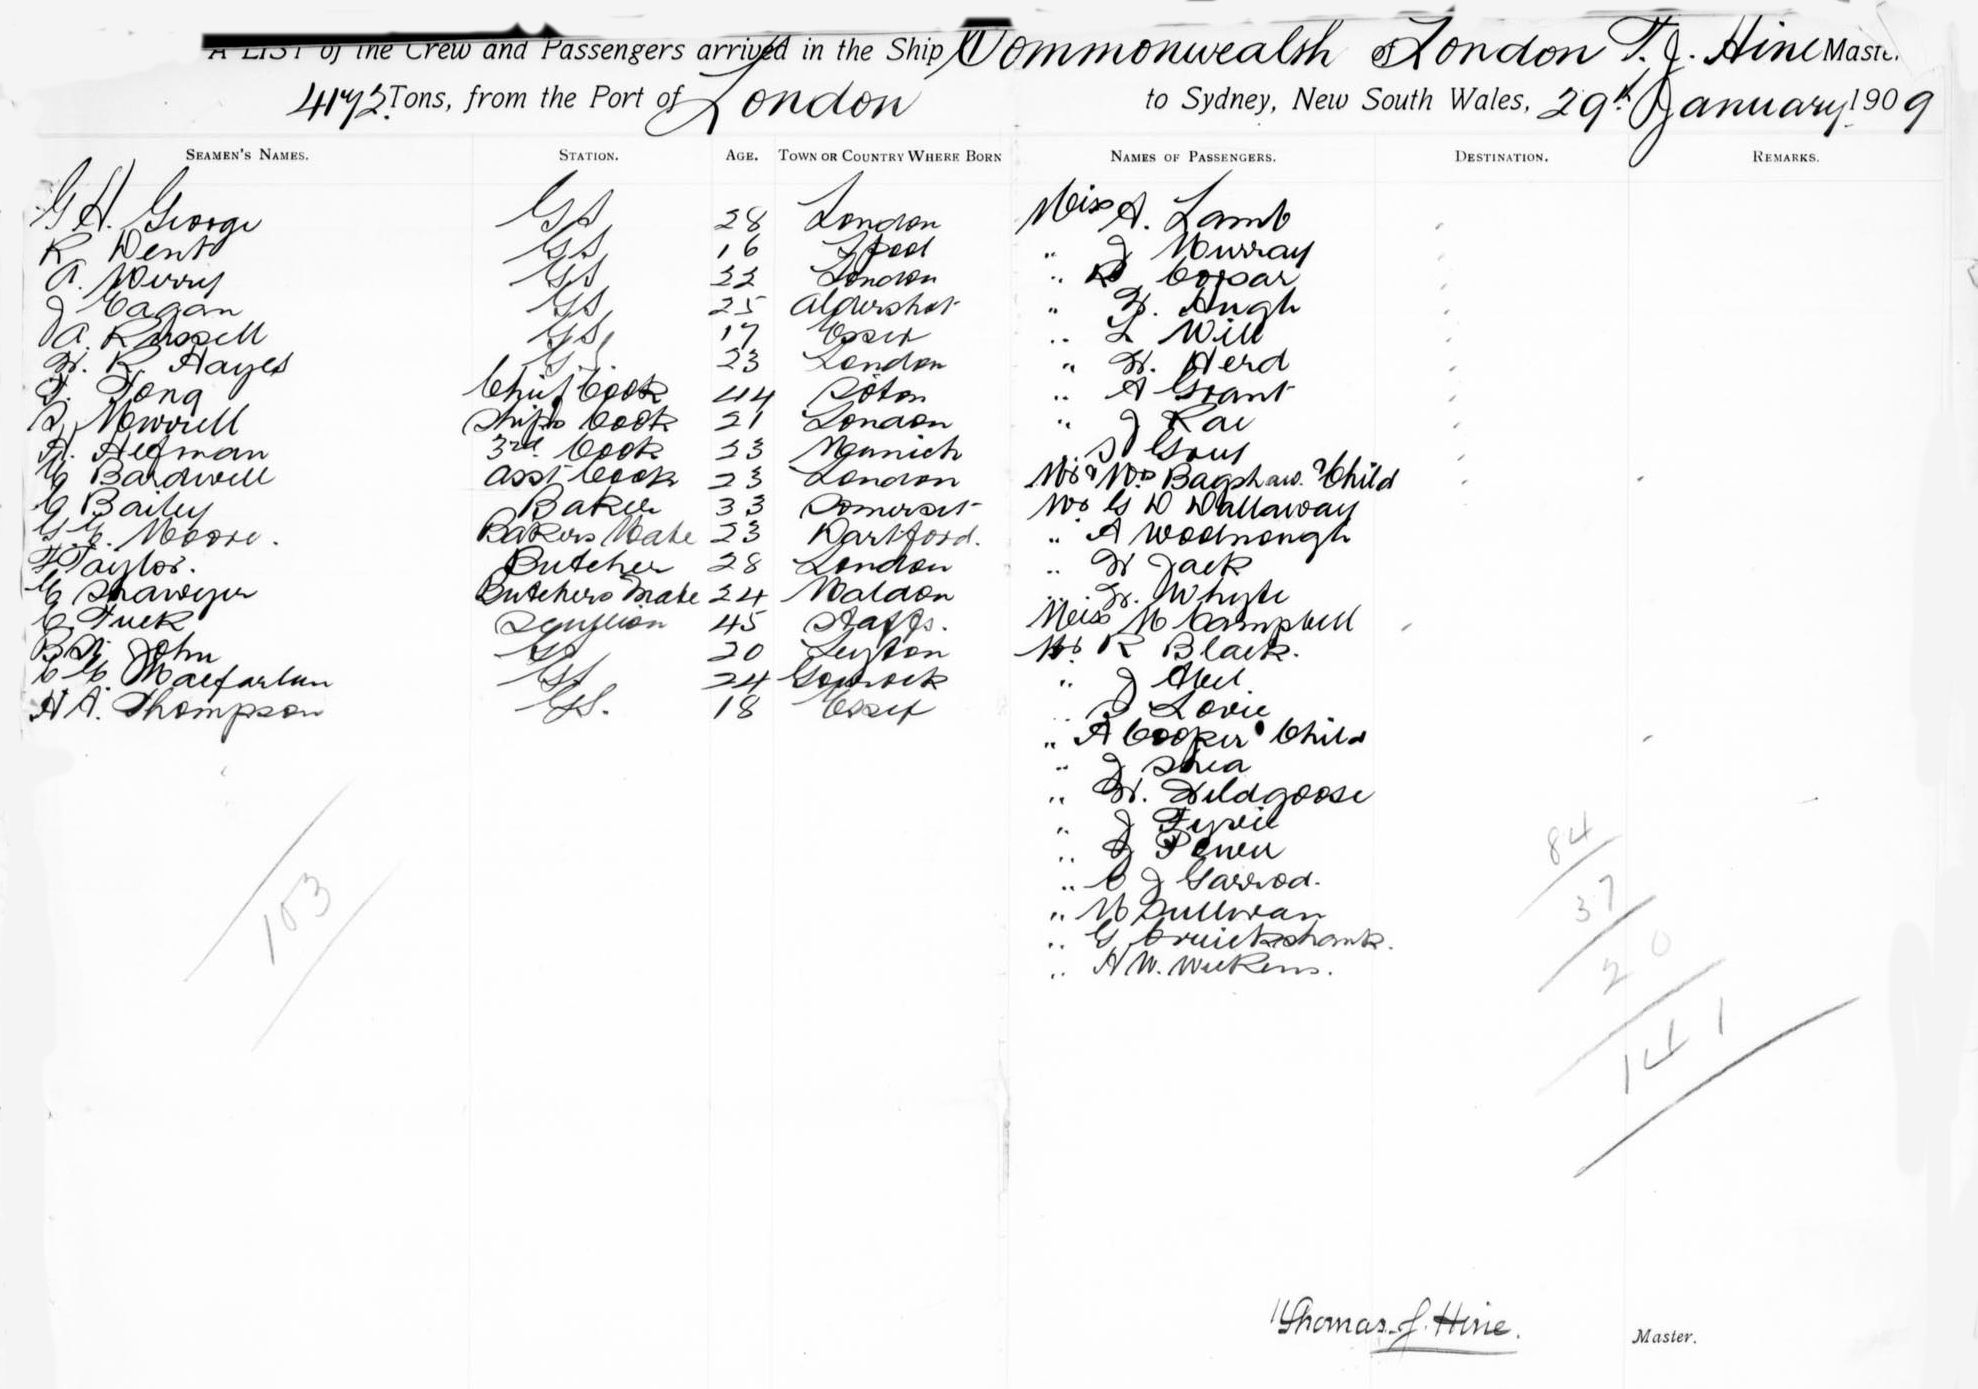 A LIST of the Crew and Passengers arrived in the Ship Commonwealth of London T. J. Hine Master.
4172 Tons, from the Port of London to Sydney, New South Wales, 29th January 1909
SEAMEN'S NAMES. STATION. AGE. TOWN OR COUNTRY WHERE BORN NAMES OF PASSENGERS. DESTINATION. REMARKS.
G H. George GS 28 London Miss A. Lamb
R Dent GS 16 Lpool " J Murray
A. Merry GS 22 London " Corsar
J Eagan GS 25 Aldershot " W. Hugh
A. Russell GS 17 Essex " L Will
W. R Hayes GS. 23 London " W. Herd
Tong Chief Cook 44 Soton " A Grant
Morrell Ships Cook 21 London " J Rae
Hefman 3rd Cook 23 Munich " Gray
C Bardwell Asst Cook 23 London Mr & Mrs Bagshaw & Child
C Bailey Baker 33 Somerset Mr G D Dallaway
G. C. Moore. Bakers Mate 23 Dartford. " A Woodnough
F Taylor. Butcher 28 London " W Jack
C Sawyer Butchers Mate 24 Maldon " W. Whyte
C. Tuck Scullion 45 Staffs. Miss M Campbell
John GS 20 Leyton Mr. R Black.
C C Macfarlan GS 24 Gourock " J Abel.
H A. Thompson GS. 18 Essex " Lovie
" A Cooper & Child
" J Shea
" W. Wildgoose
" J Fyvie
" J
" C J Garrod.
" M Sullivan
" G Cruickshank.
" A W. Weekens.
103
84
37
20
141
Thomas. J. Hine. Master.